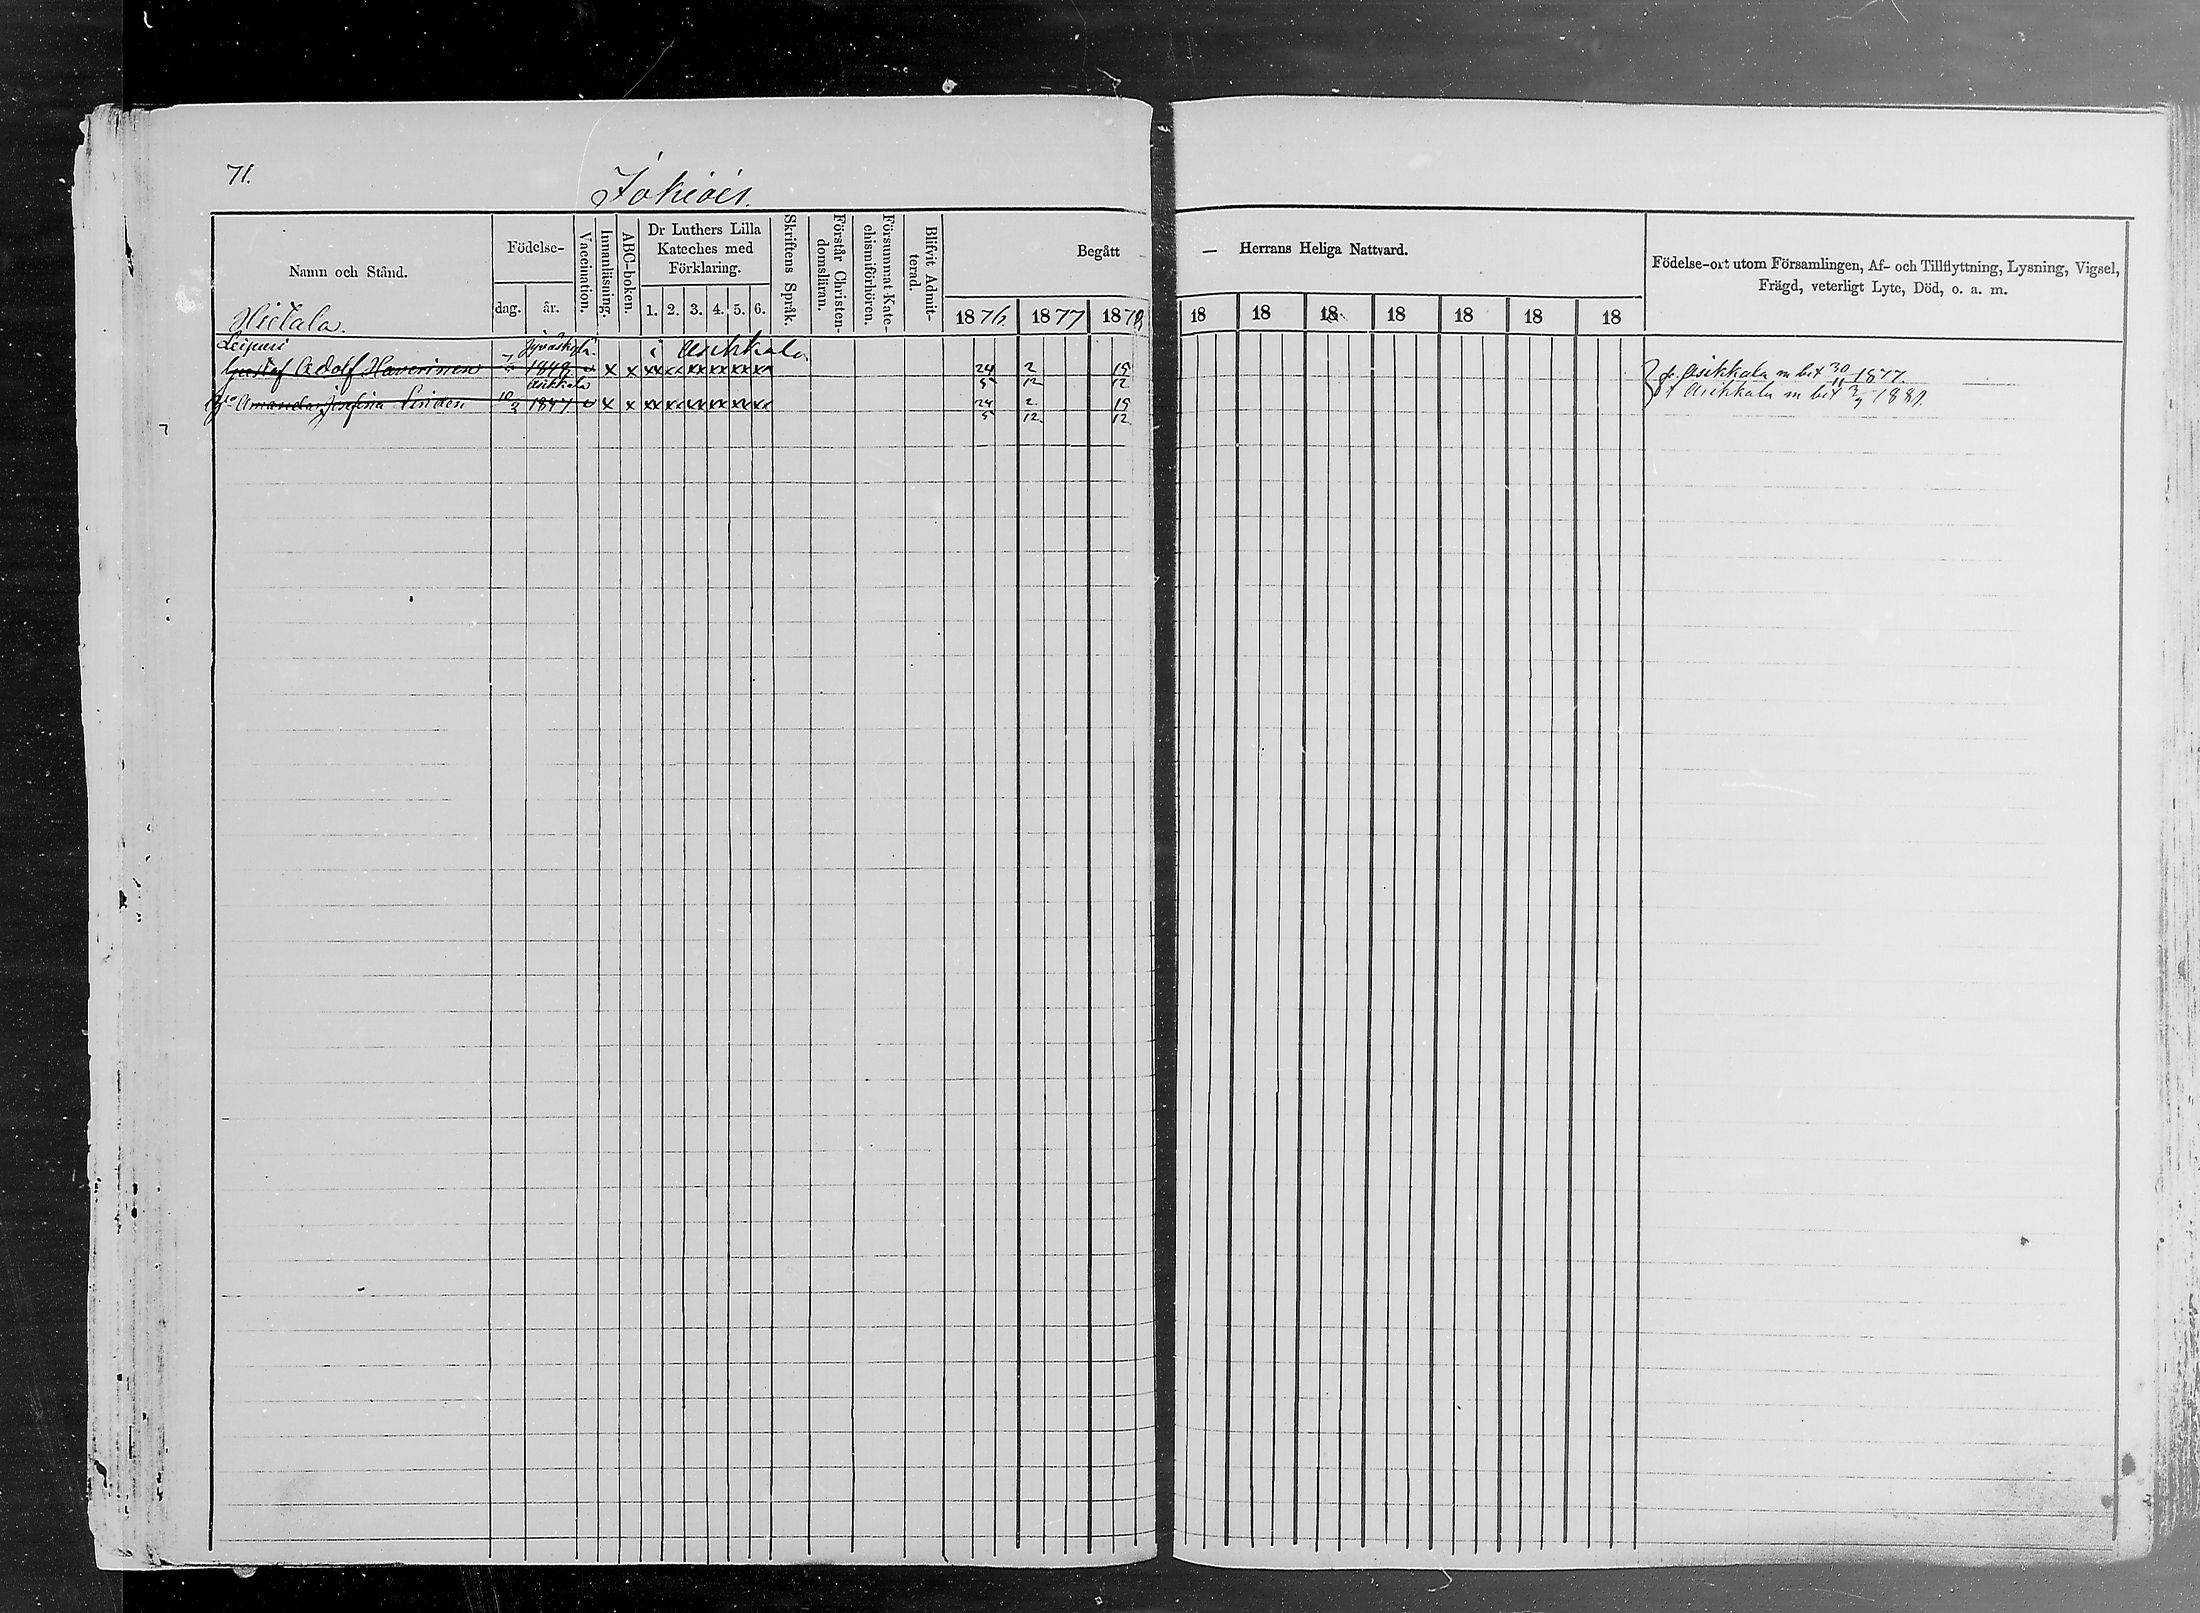 71.
Jokiois.
Namn och Stånd.
Födelse-
dag.
år.
Vaccination.
Innanläsning.
ABC-boken.
Dr Luthers Lilla
Kateches med
Förklaring.
1. 2. 3. 4. 5. 6.
Skriftens Språk.
Förstår Christen-
domsläran.
Försummat Kate-
chismiförhören.
Blifvit Admit-
terad.
Begått
— Herrans Heliga Nattvard.
1876. 1877 1878
18 18 18 18 18 18 18
Födelse-ort utom Församlingen, Af- och Tillflyttning, Lysning, Vigsel,
Frägd, veterligt Lyte, Död, o. a. m.
Hietala.
Leipuri Jyväskylä. i Asikkala.
Gustaf Adolf Haverinen 1848 x x xx xx xx xx xx xx 24/5 2/12 15/12
fr Asikkala m bet 30/11 1877.
Asikkala
Amanda Josefina Linden 10/2 1847 x x xx xx xx xx xx xx 24/5 2/12 15/12
Asikkala m bet 1881.